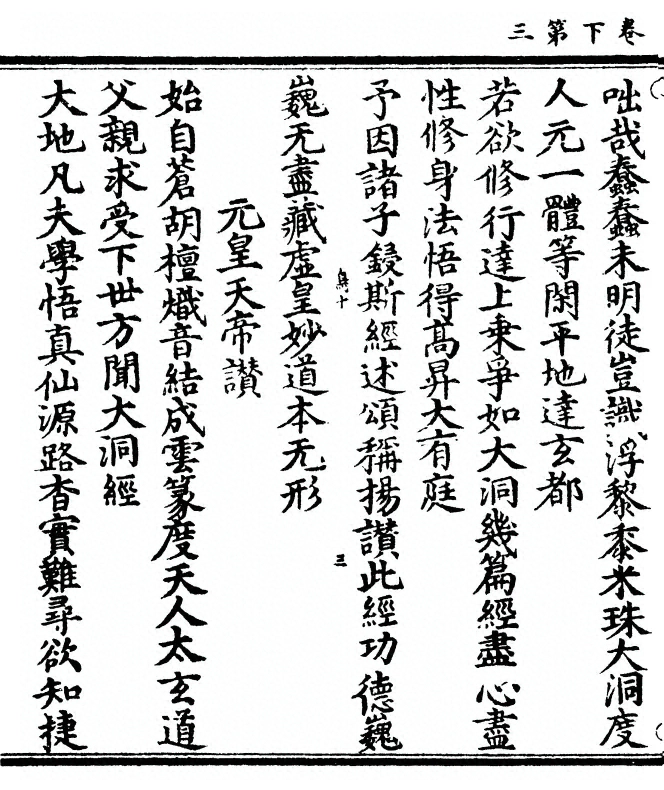 卷下第三
咄哉蠢蠢未明徒豈識浮黎黍米珠大洞度
人元一體等閑平地達玄都
若欲修行達上乘爭如大洞幾篇經盡心盡
性修身法悟得高昇大有庭
予因諸子鋟斯經述頌稱揚讃此經功德巍
三
巍无盡藏虛皇妙道本无形
元皇天帝讃
始自蒼胡檀熾音結成雲篆度天人太玄道
父親求受下世方聞大洞經
大地凡夫學悟真仙源路杳實難尋欲知捷